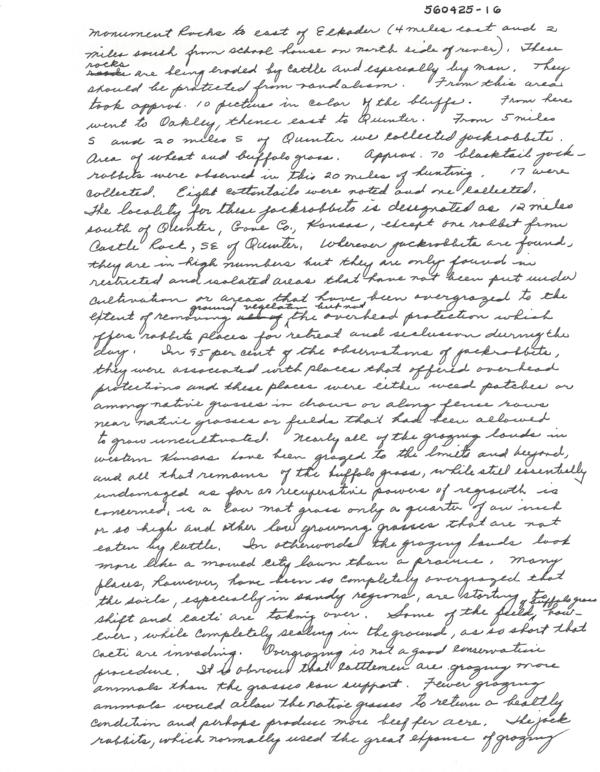 560425-16
Monument Rocks to east of Elkader (4 miles east and 2
miles south from school house on north side of river). These
rocks
are being eroded by cattle and especially by man. They
should be protected from vandalism. From this area
took approx. 10 pictures in color of the bluffs. From here
went to Oakley, thence east to Quinter. From 5 miles
S and 20 miles S of Quinter we collected jackrabbits.
Area of wheat and buffalo grass. Approx. 70 blacktail jack-
rabbits were observed in this 20 miles of hunting. 17 were
collected. Eight cottontails were noted and one collected.
The locality for these jackrabbits is designated as 12 miles
south of Quinter, Gove Co., Kansas, except one rabbit from
Castle Rock, SE of Quinter. Wherever jackrabbits are found,
they are in high numbers but they are only found in
restricted and isolated areas that have not been put under
cultivation or areas that have been overgrazed to the
ground vegetation but not
extent of removing all of the overhead protection which
offers rabbits places for retreat and seclusion during the
day. In 95 per cent of the observations of jackrabbits,
they were associated with places that offered overhead
protections and these places were either weed patches or
among native grasses in draws or along fence rows
near native grasses or fields that had been allowed
to grow uncultivated. Nearly all of the grazing lands in
western Kansas have been grazed to the limits and beyond,
and all that remains of the buffalo grass, while still essentially
undamaged as far as recuperative powers of regrowth is
concerned, is a low mat grass only a quarter of an inch
or so high and other low growing grasses that are not
eaten by cattle. In otherwords the grazing lands look
more like a mowed city lawn than a prairie. Many
places, however, have been so completely overgrazed that
the soils, especially in sandy regions, are starting to
shift and cacti are taking over. Some of the field, how-
of buffalo grass
ever, while completely sealing in the ground, as so short that
cacti are invading. Overgrazing is not a good conservation
procedure. It is obvious that cattlemen are grazing more
animals than the grasses can support. Fewer grazing
animals would allow the native grasses to return a healthy
condition and perhaps produce more beef per acre. The jack
rabbits, which normally used the great expanse of grazing